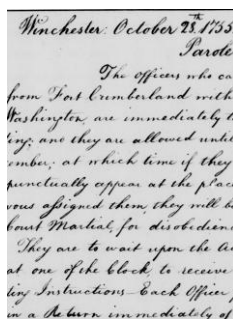 Winchester: October 28th, 1755
Parole
The officers who ca
from Fort Cumberland with
Washington, are immediately t
ing; and they are allowed until
ember; at which time if they
punctually appear at the plac
vous assigned them, they will b
Court Martial, for disobedienc
They are to wait upon the
at one of the Clock, to receive
ting Instructions — Each Officer
in a Return immediately of